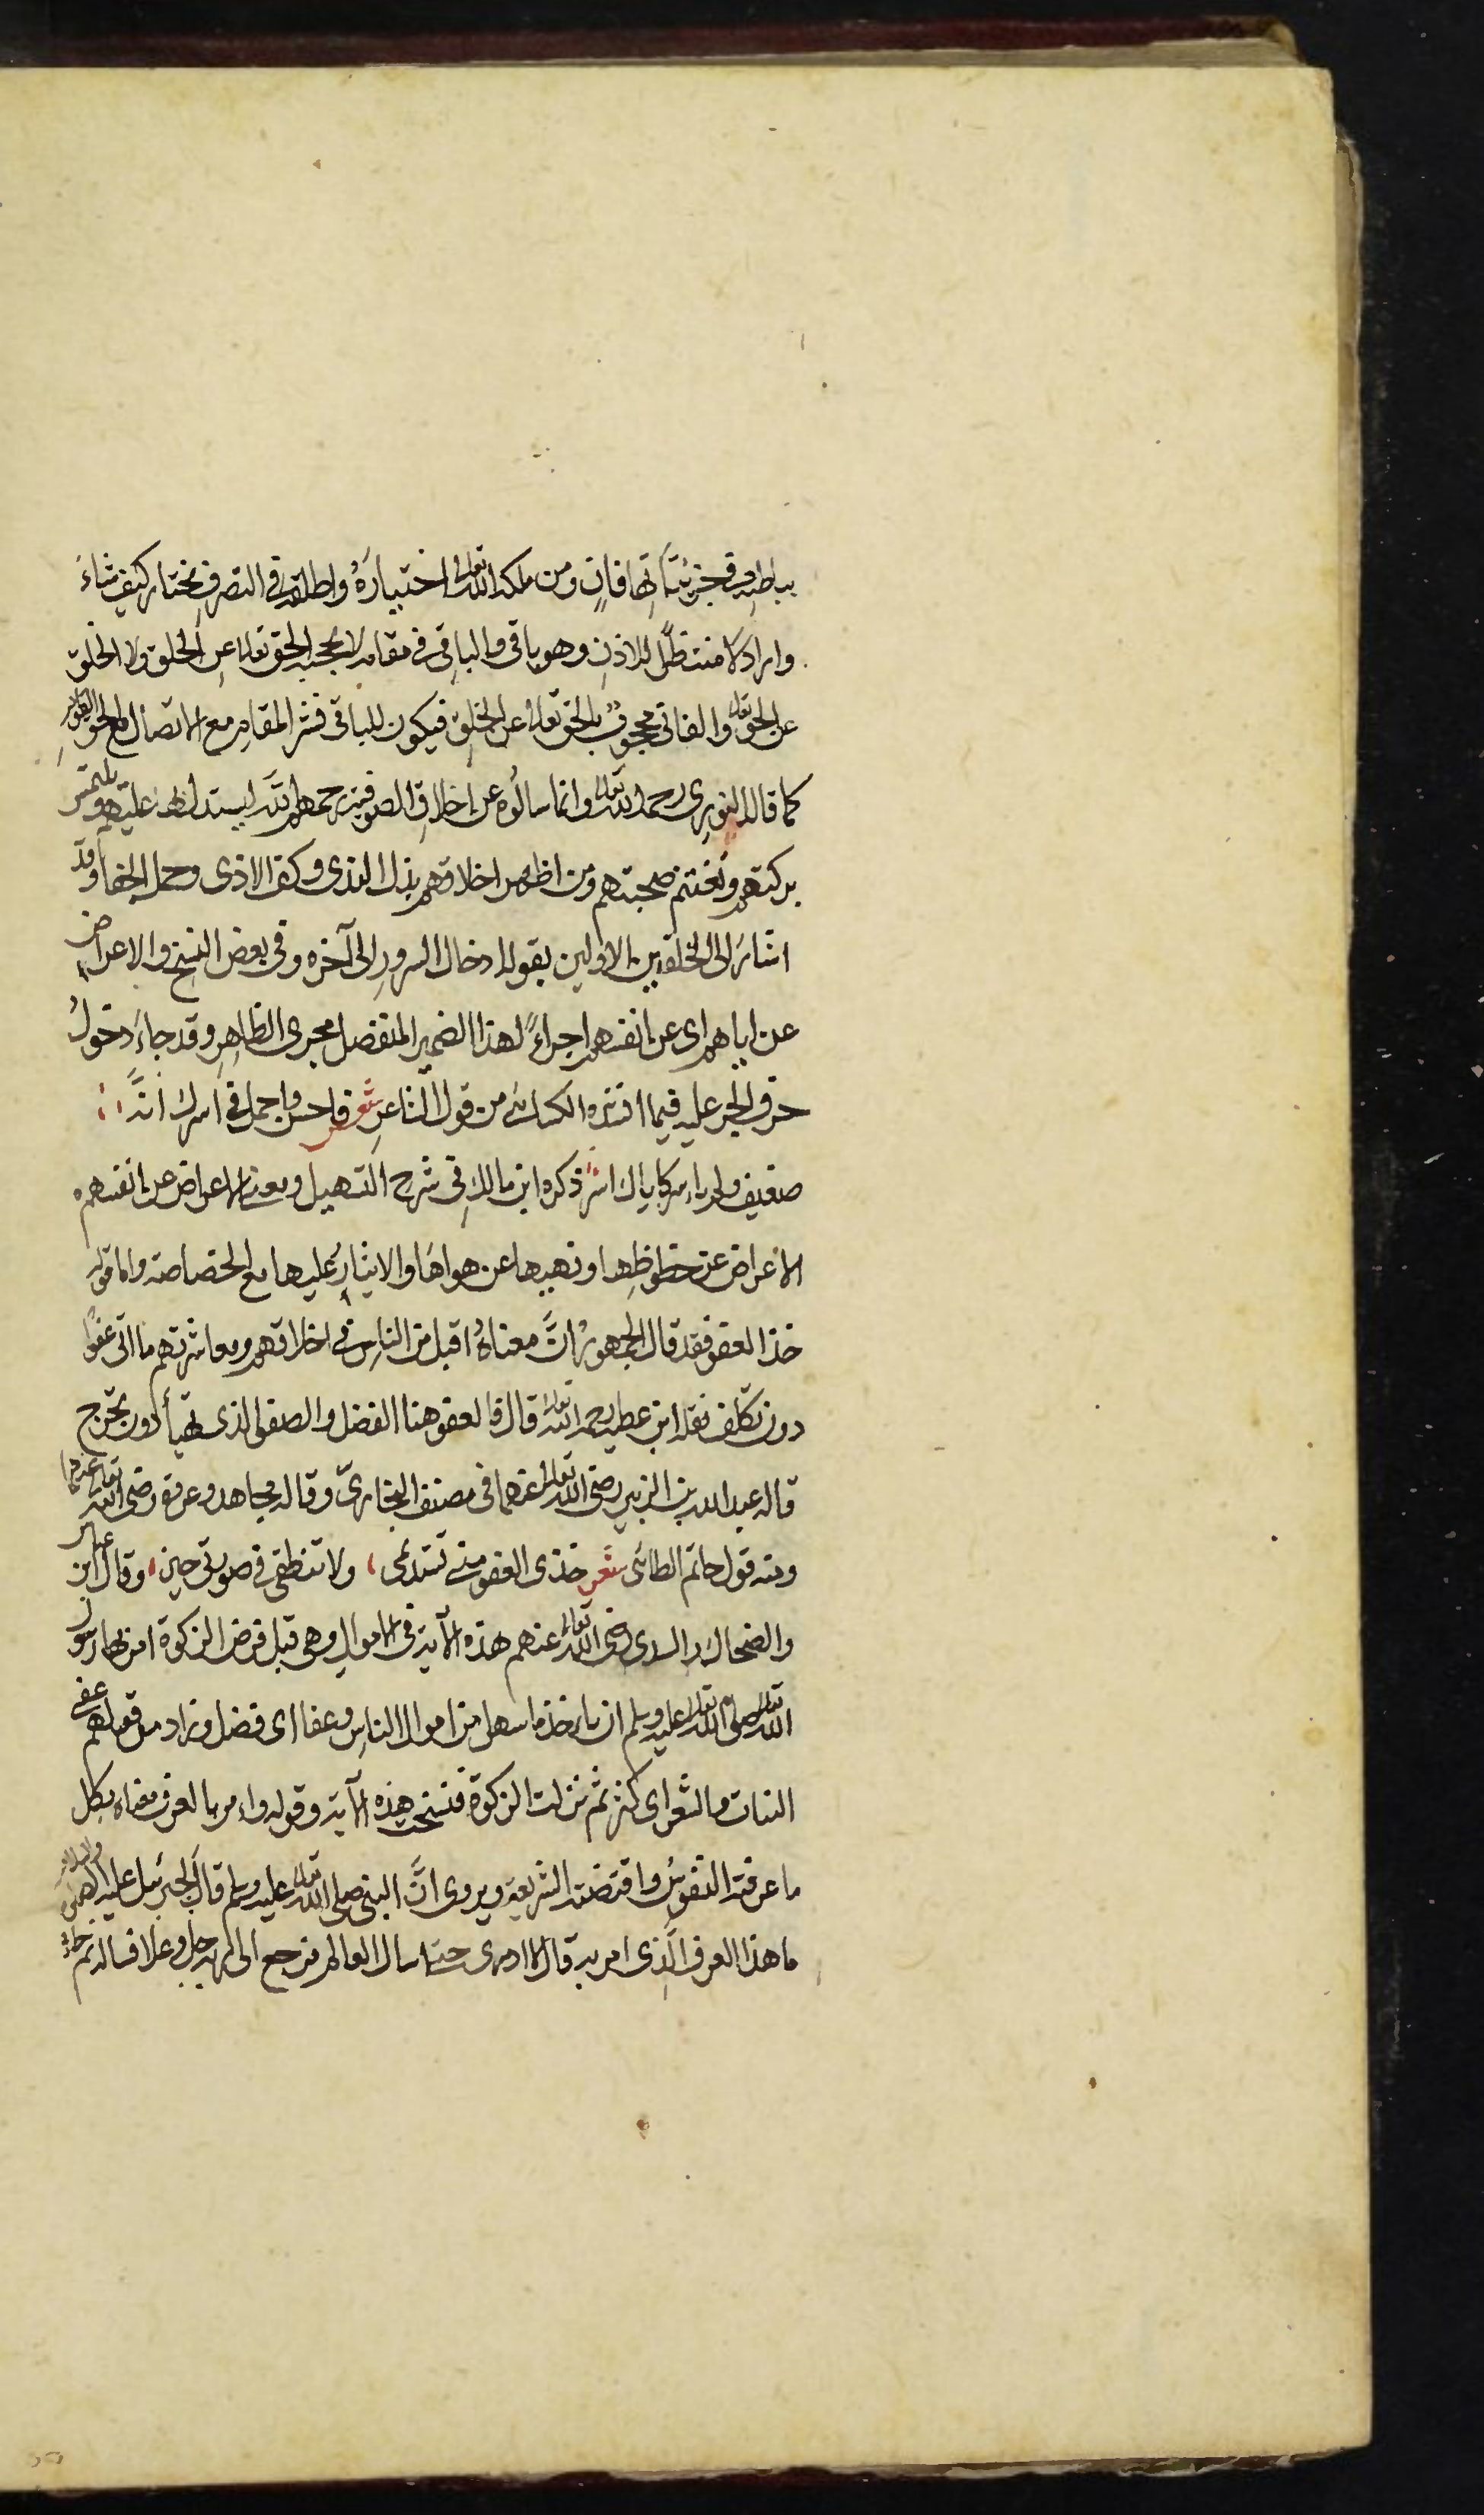 بباطنه في جزئياتها فانٍ ومن ملكه الله تعالى اختياره واطلقه في التصرف يختار كيف شاء
واراد لا منتظرًا للاذن وهو باقي والباقي في مقام لا يحجبه الحق تعالى عن الخلق ولا الخلق
عن الحق تعالى والفاني محجوب بالحق تعالى عن الخلق فيكون للباقي المقام مع الاتصال
كما قال النوري رحمه الله تعالى وانما سالوه عن اخلاق الصوفية رحمهم الله ليستدل بها عليهم ويلتمس
بركتهم وتغتنم صحبتهم ومن اظهر اخلاقهم بذل الندى وكف الاذى وحمل الجفا وقد
اشار الى الخلقين الاولين بقوله ادخال السرور الى آخره وفي بعض النسخ والاعراض
عن اياهم اى عن انفسهم اجراءً لهذا الضمير المنفصل مجرى الظاهر وقد جاء دخول
حرف الجر عليه فيما انشده الكسائى من قول الشاعر شعر فاحسن واجمل في اسيرك انه
ضعيف ولم ياسر كاياك اسر ذكره ابن مالك في شرح التسهيل ومعنى الاعراض عن انفسهم
الاعراض عن حظوظها ونهيها عن هواها والايثار عليها مع الخصاصة واما قوله
خذ العفو فقد قال الجمهور ان معناه اقبل من الناس في اخلاقهم ومعاشرتهم ما اتى عفوًا
دون تكلف نقله ابن عطية رحمه الله تعالى قال فالعفو هنا الفضل والصفو الذى تهيأ دون تحرج
قاله عبد الله بن الزبير رضى الله تعالى عنهما في مصنف البخاري وقاله مجاهد وعروة رضى الله تعالى عنهما
ومنه قول حاتم الطائى شعر خذى العفو منى تستديمى ولا تنطقى في سورتى حين وقال ابن عباس
والضحاك والسدى رضى الله تعالى عنهم هذه الآية في الاموال وهى قبل فرض الزكوة امر بها رسول
الله تعالى صلى الله تعالى عليه وسلم ان ياخذ ما سهل من اموال الناس وعفا اى فضل وزاد من قولهم عفى
النبات والشعر اى كثر ثم نزلت الزكوة فنسخت هذه الآية وقوله وامر بالعرف معناه بكل
ما عرفته النفوس واقتضته الشريعة ويروى ان النبى صلى الله تعالى عليه وسلم قال لجبرئيل عليه
ما هذا العرف الذى امر به قال لا ادرى حتى اسال العالم فرجع الى ربه جل وعلا فساله ثم جاء